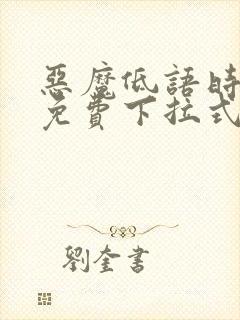 惡魔低語時
免費下拉式
劉奎書